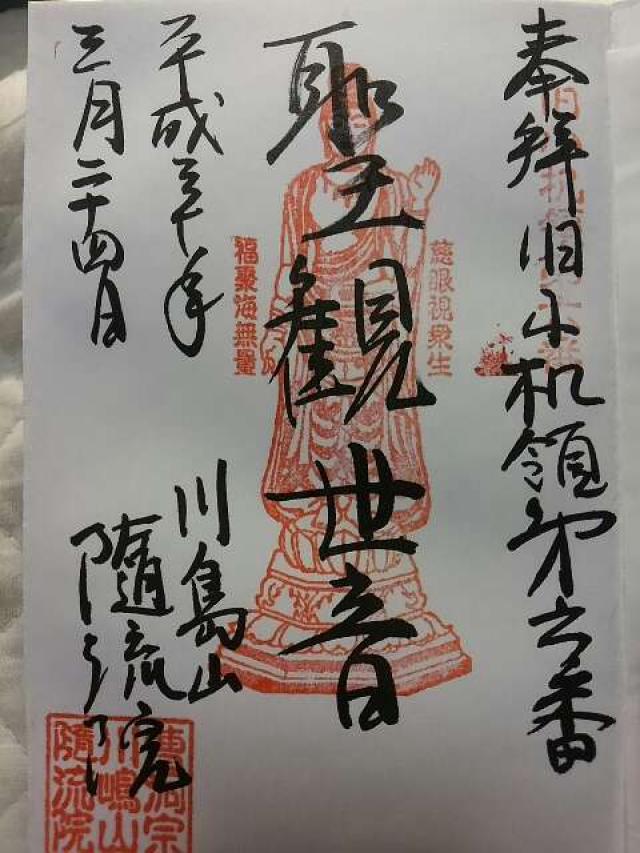 奉拝旧小机領第六番
慈眼視衆生
聖観世音
福聚海無量
平成三十年
三月二十四日
川島山
随流院
曹洞宗
川嶋山
隨流院